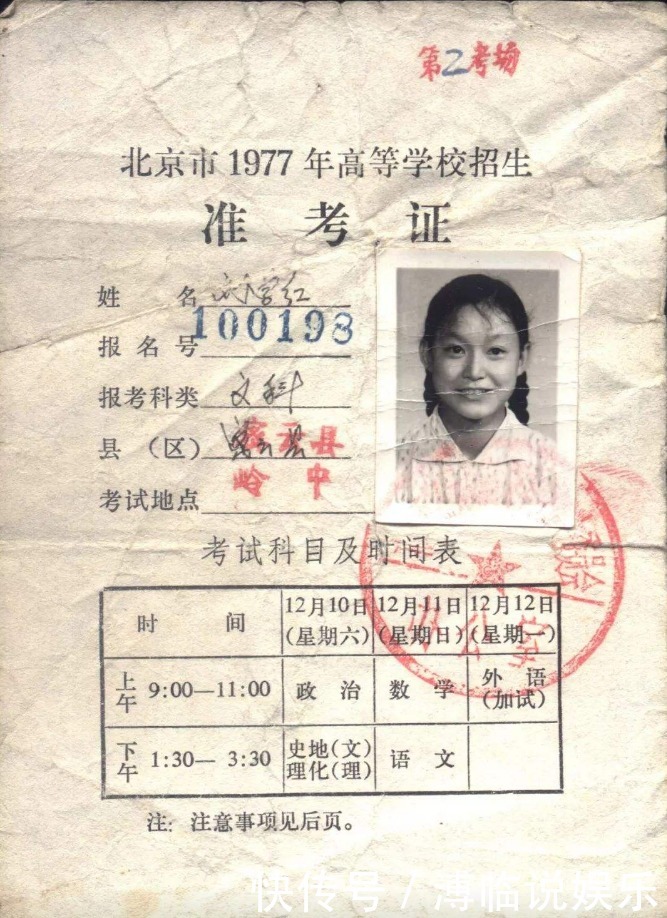 第2考场
北京市1977年高等学校招生
准考证
姓 名 刘学红
报名号 100198
报考科类 文科
县（区） 密云县
岭中
考试地点
考试科目及时间表
时 间 12月10日(星期六) 12月11日(星期日) 12月12日(星期一)
上午 9:00—11:00 政治 数学 外语(加试)
下午 1:30— 3:30 史地(文)理化(理) 语文
注：注意事项见后页。
快传号 / 溥临说娱乐